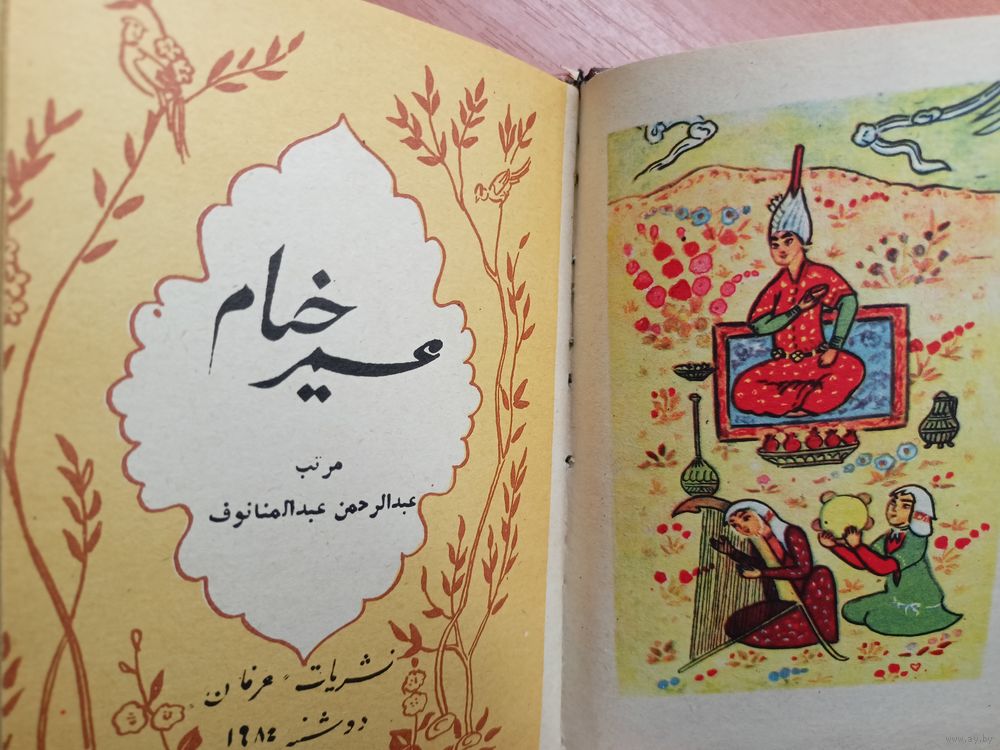 عمر خیام
مرتب
عبدالرحمن عبدالمنانوف
نشریات «عرفان»
دوشنبه ۱۹۸۴
www.ay.by